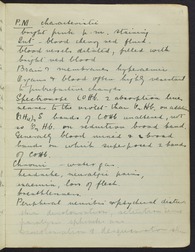 P.M characteristic
bright pink p.m. staining
but blood cherry red fluid.
blood vessels dilated, filled with
bright red blood
Brain & membranes hyperaemic
Organs & blood often highly resistant
to putrefactive changes
Spectroscope COHb. 2 absorption lines
nearer to the violet than O2 Hb. on adding
(NH4)2S bands of COHb unaltered, not
so O2 Hb. on reduction broad band
Generally blood mixed & a broad
bands on which superposed 2 bands
of COHb
Chronic water gas
headache, neuralgic pains,
anaemia, loss of flesh.
breathlessness.
Peripheral neuritis & physical